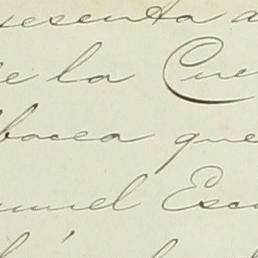 presenta a
de la Cue
lbacea que
anuel Esc